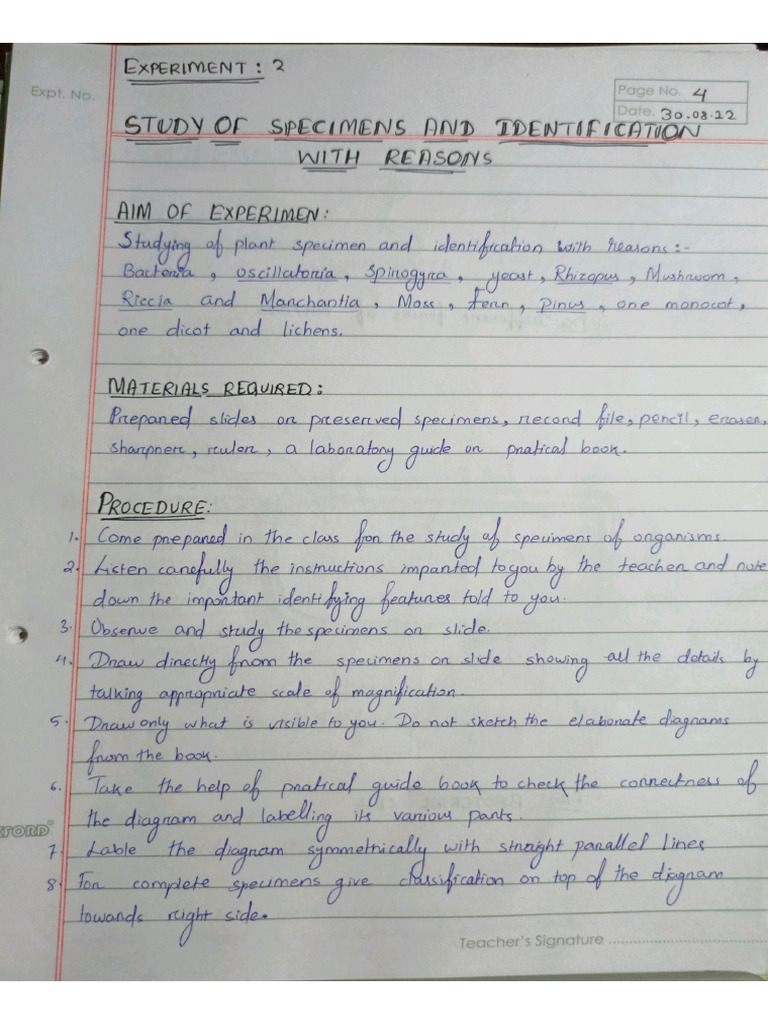 EXPERIMENT : 2
Expt. No.
Page No. 4
Date. 30.08.22
STUDY OF SPECIMENS AND IDENTIFICATION
WITH REASONS
AIM OF EXPERIMEN:
Studying of plant specimen and identification with reasons:-
Bacteria, oscillatoria, Spirogyra, yeast, Rhizopus, Mushroom,
Riccia and Marchantia, Moss, fern, pinus, one monocot,
one dicot and lichens.
MATERIALS REQUIRED:
Prepared slides or preserved specimens, record file, pencil, eraser,
sharpner, ruler, a laboratory guide or pratical book.
PROCEDURE:
1. Come prepared in the class for the study of specimens of organisms.
2. Listen carefully the instructions imparted to you by the teacher and note
down the important identifying features told to you.
3. Observe and study the specimens or slide.
4. Draw directly from the specimens or slide showing all the details by
talking appropriate scale of magnification.
5. Draw only what is visible to you. Do not sketch the elaborate diagrams
from the book.
6. Take the help of pratical guide book to check the correctness of
the diagram and labelling its various parts.
XFORD
7. Lable the diagram symmetrically with straight parallel lines
8. For complete specimens give classification on top of the diagram
towards right side.
Teacher's Signature